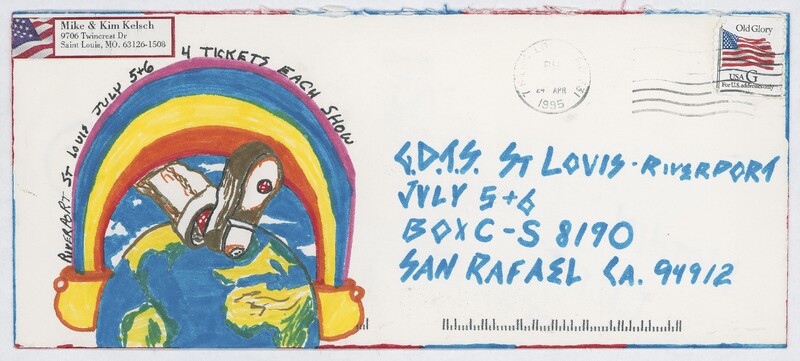 Mike & Kim Kelsch
9706 Twincrest Dr
Saint Louis, MO. 63126-1508
RIVERPORT ST LOUIS JULY 5+6 4 TICKETS EACH SHOW
24 APR
1995
Old Glory
USA G
For U.S. addresses only
G.D.T.S. ST LOUIS-RIVERPORT
JULY 5+6
BOX C-S 8190
SAN RAFAEL CA. 94912